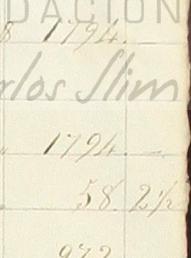 DACIÓN
1794.
rlos Slim
1794.
58. 2½
972